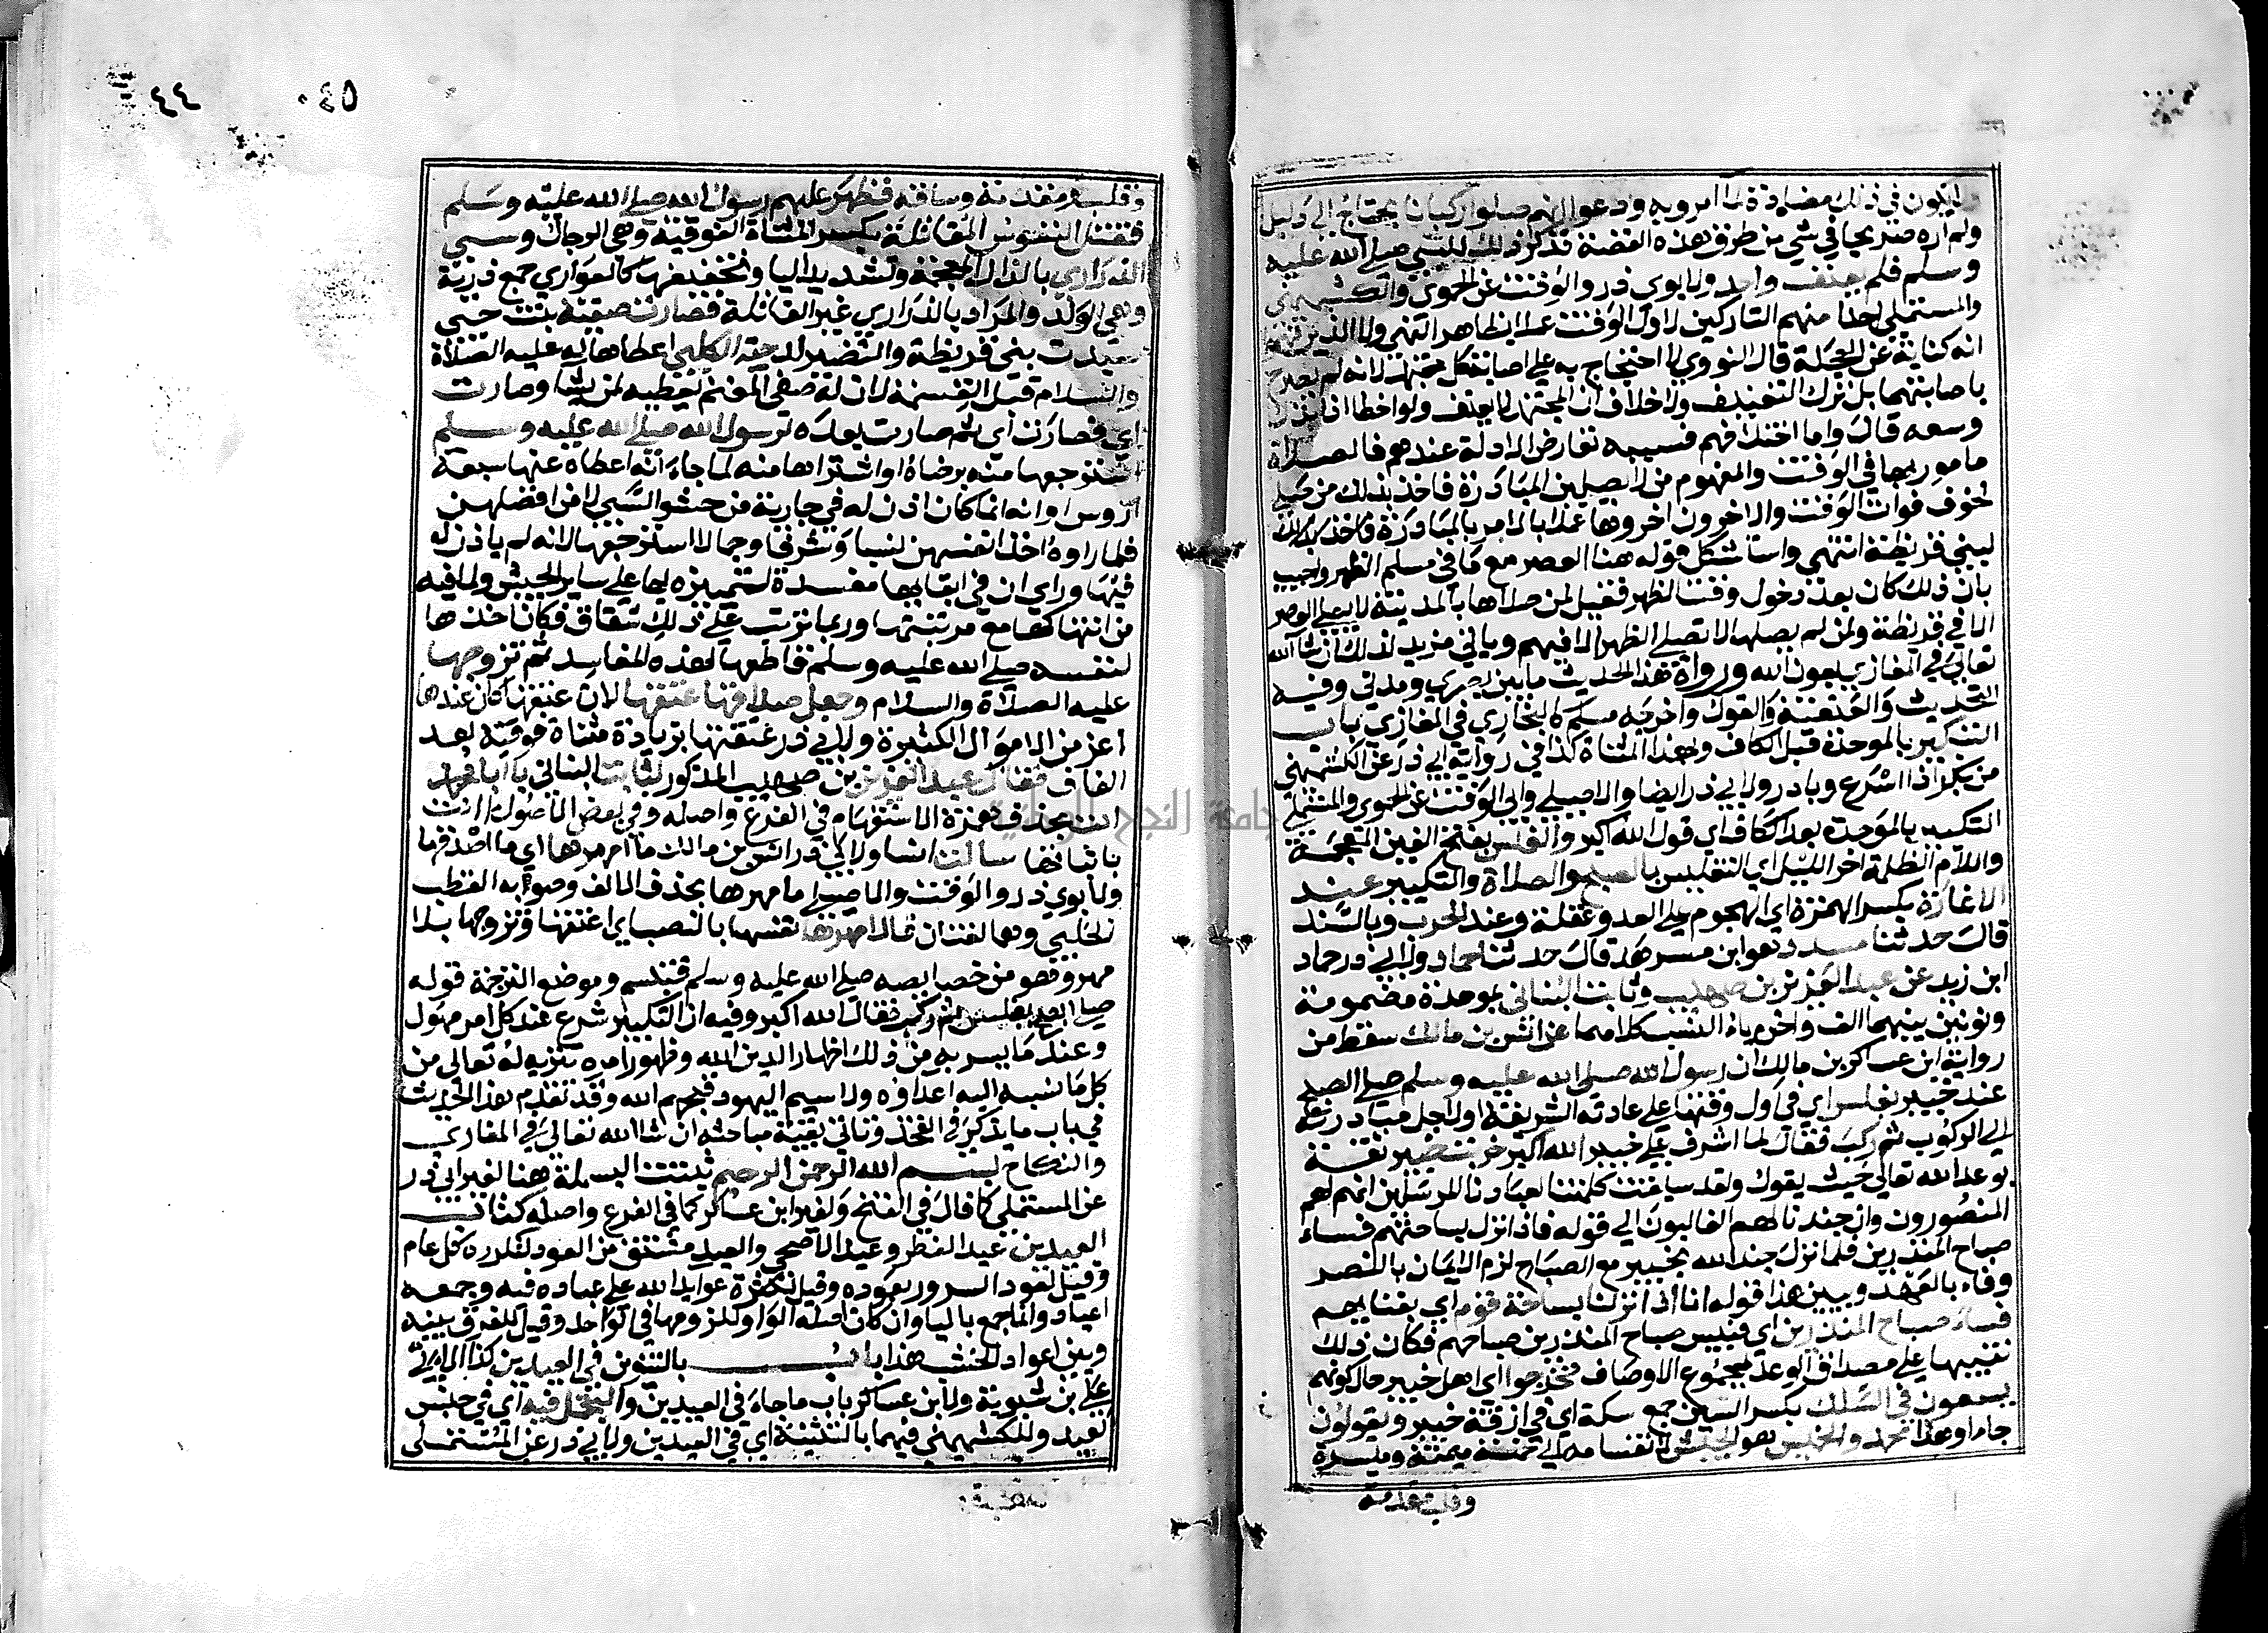 ولا يكون في ذلك مضادة لما امر وبه ودعوا انهم صلوا ركبانا يحتاج الي دليل
ولم اره صريحا في شي من طرق هذه القصة فذكر ذلك للنبي صلي الله عليه
وسلم فلم يعنف واحد ولابوي ذر والوقت عن الحموي والكشميهني
والمستملي احدا منهم التاركين لاول الوقت عملا بظاهر النهي ولا الذين
انه كناية عن العجلة قال النووي لا احتجاج به علي اصابة كل مجتهد لانه لم يصرح
باصابتهما بل ترك التعنيف ولا خلاف ان المجتهد لا يعنف ولو اخطا اذا بذل
وسعه قال واما اختلافهم فسببه تعارض الادلة عندهم فالصلاة
مامور بها في الوقت والمفهوم من لا يصلين المبادرة فاخذ بذلك من صلي
لخوف فوات الوقت والاخرون اخروها عملا بالامر بالمبادرة
لبني قريظة انتهي واستشكل قوله هنا العصر مع ما في مسلم الظهر واجيب
بان ذلك كان بعد دخول وقت الظهر فقيل لمن صلاها بالمدينة لا يصلي العصر
الا في قريظة ولمن لم يصلها لا تصلي الظهر الا فيهم وياتي مزيد لذلك ان شا الله
تعالي في المغازي بعون الله ورواة هذا الحديث ما بين بصري ومدني وفيه
التحديث والعنعنة والقول واخرجه مسلم كالبخاري في المغازي باب
التبكير بالموحدة قبل الكاف وبعدها المثناة كذا في رواية ابي ذر عن الكشميهني
من بكر اذا اسرع وبادر ولابي ذر ايضا والاصيلي وابي الوقت عن الحموي والمستملي
التكبير بالموحدة بعد الكاف اي قول الله اكبر والغلس بفتح الغين المعجمة
واللام الظلمة اخر الليل اي التغليس بالصبح والصلاة والتكبير عند
الاغارة بكسر الهمزة اي الهجوم علي العدو وغفلة وعند الحرب وبالسند
قال حدثنا مسدد وهو ابن مسرهد قال حدثنا حماد ولابي ذر حماد
ابن زيد عن عبد العزيز بن صهيب وثابت البناني بموحدة مضمومة
ونونين بينهما الف واخره ياء النسب كلاهما عن انس بن مالك سقط من
رواية ابن عساكر بن مالك ان رسول الله صلي الله عليه وسلم صلي الصبح
عند خيبر بغلس اي في اول وقتها علي عادته الشريفة او لاجل مبادرته
الي الركوب ثم ركب فقال لما اشرف علي خيبر الله اكبر خربت خيبر ثقة
بوعد الله تعالي حيث يقول ولقد سبقت كلمتنا لعبادنا المرسلين انهم لهم
المنصورون وان جندنا لهم الغالبون الي قوله فاذا نزل بساحتهم فساء
صباح المنذرين فلما نزل جند الله بخيبر مع الصباح لزم الايمان بالنصر
وفاء بالعهد وبين هذا قوله انا اذا نزلنا بساحة قوم اي بفنايهم
فساء صباح المنذرين اي فبيس صباح المنذرين صباحهم فكان ذلك
تنبيها علي مصداق الوعد بمجموع الاوصاف فخرجوا اي اهل خيبر حال كونهم
يسعون في السكك بكسر السين جمع سكة اي في ازقة خيبر ويقولون
جاء او هذا محمد والخميس هو الجيش لانقسامه الي خمسة ميمنة وميسرة
وقلب ومقدمة
٠٤٥
٤٤
وقلب ومقدمة وساقة فظهر عليهم رسول الله صلي الله عليه وسلم
فقتل النفوس المقاتلة بكسر المثناة الفوقية وهي الرجال وسبي
الذراري بالذال المعجمة وتشديد اليا وتخفيفها كالعواري جمع ذرية
وهي الولد والمراد بالذراري غير المقاتلة فصارت صفية بنت حيي
سيدت بني قريظة والنضير لدحية الكلبي اعطاها له عليه الصلاة
والسلام قبل القسمة لان له صفي المغنم يعطيه لمن يشا وصارت
اي فصارت اي ثم صارت بعده لرسول الله صلي الله عليه وسلم
استرجعها منه برضاه او اشتراها منه لما جاء انه اعطاه عنها سبعة
ارؤس او انه انما كان اذن له في جارية من حشو السبي لا من افضلهن
فلما راوه اخذ انفسهن نسبا وشرفا وجمالا استرجعها لانه لم ياذن له
فيها وراي ان في ابقايها مفسدة لتميزه بها علي ساير الجيش ولما فيه
من انتهاكها مع مرتبتها وربما ترتب علي ذلك شقاق فكان اخذها
لنفسه صلي الله عليه وسلم قاطعا لهذه المفاسد ثم تزوجها
عليه الصلاة والسلام وجعل صداقها عتقها لان عتقها كان عندها
اعز من الاموال الكثيرة ولابي ذر عتقتها بزيادة مثناة فوقية بعد
القاف فقال عبد العزيز بن صهيب المذكور لثابت البناني يا ابا محمد
انت بحذف همزة الاستفهام في الفرع واصله وفي بعض الاصول اانت
باثباتها سالت انسا ولابي ذر انس بن مالك ما امهرها اي ما اصدقها
ولابوي ذر والوقت والاصيلي ما مهرها بحذف الالف وصوابه القطب
الحلبي وهما لغتان قال امهرها نفسها بالنصب اي اعتقها وتزوجها بلا
مهر وهو من خصايصه صلي الله عليه وسلم فتبسم وموضع الترجمة قوله
صلي الصبح بغلس ثم ركب فقال الله اكبر وفيه ان التكبير شرع عند كل امر مهول
وعند ما يسر به من ذلك اظهارا لدين الله وظهور امره تنزيه له تعالي من
كل ما نسبه اليه اعداؤه ولا سيم اليهود قبحهم الله وقد تقدم هذا الحديث
في باب ما يذكر في الفخذ وتاتي بقية مباحثه ان شا الله تعالي في المغازي
والنكاح بسم الله الرحمن الرحيم ثبتت البسملة هنا لغير ابي ذر
عن المستملي كما قال في الفتح ولغير ابن عساكر كما في الفرع واصله كتاب
العيدين عيد الفطر وعيد الاضحي والعيد مشتق من العود لتكرره كل عام
وقيل لعود السرور بعوده وقيل لكثرة عوايد الله علي عباده فيه وجمعه
اعياد وانما جمع باليا وان كان اصله الواو للزومها في الواحد وقيل للفرق بينه
وبين اعواد الخشب هذا باب بالتنوين في العيدين كذا لابي
علي بن شبوية ولابن عساكر باب ما جاء في العيدين والتجمل فيه اي في جنس
العيد وللكشميهني فيهما بالتثنية اي في العيدين ولابي ذر عن المستملي
جامعة النجاح الوطنية